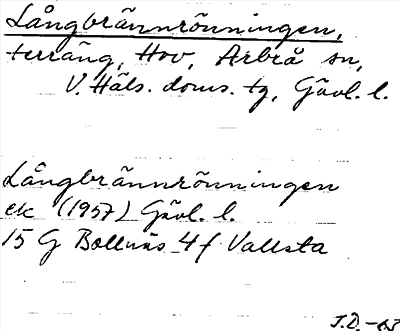 Långbrännrönningen,
terräng, Hov, Arbrå sn,
V. Häls. doms. tg, Gävl. l.
Långbrännrönningen
ek (1957) Gävl. l.
15 G Bollnäs 4 f Vallsta
J.D. -63